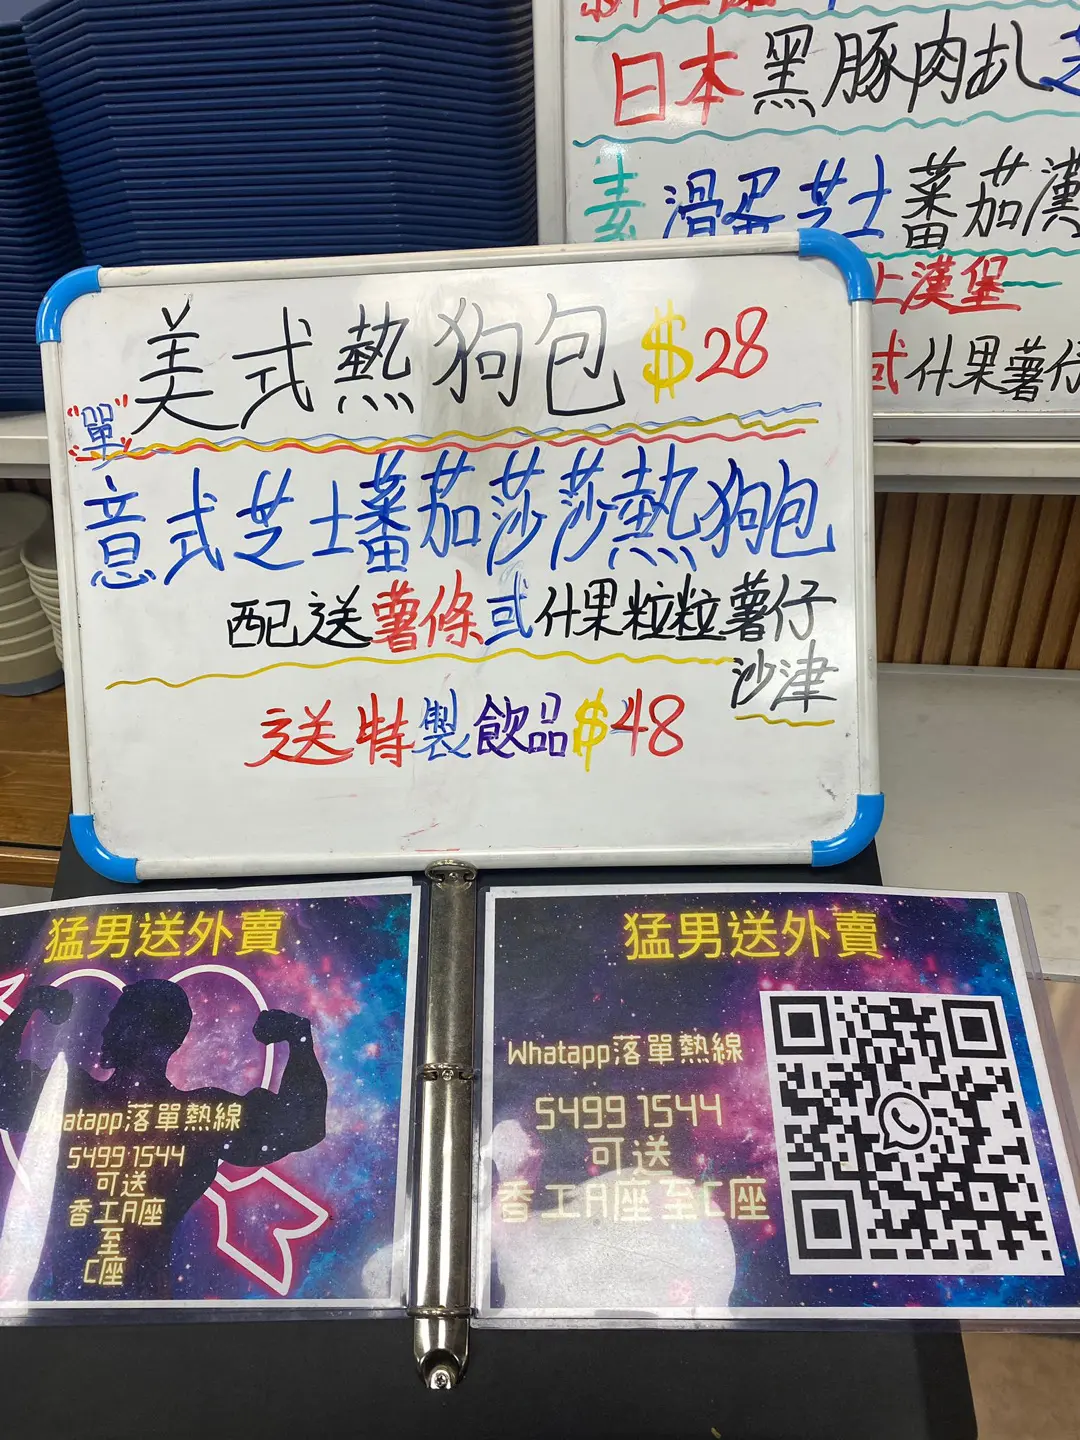 日本黑豚肉扒芝
素滑蛋芝士蕃茄漢
士漢堡
或什果薯仔
美式熱狗包 $28
"單"
意式芝士蕃茄莎莎熱狗包
配送薯條或什果粒粒薯仔
沙津
送特製飲品$48
猛男送外賣
Whatapp落單熱線
5499 1544
可送
香工A座
至
C座
猛男送外賣
Whatapp落單熱線
5499 1544
可送
香工A座至C座